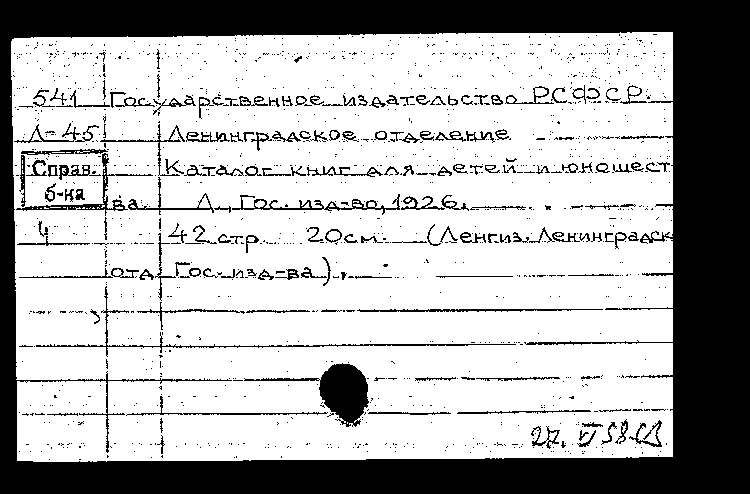 541 Государственное издательство РСФСР.
Л-45 Ленинградское отделение
Справ. Каталог книг для детей и юношест
б-ка ва Л., Гос. изд-во, 1926.
4 42 стр. 20см. (Ленгиз. Ленинградск
отд. Гос. изд-ва).
27. VI 58